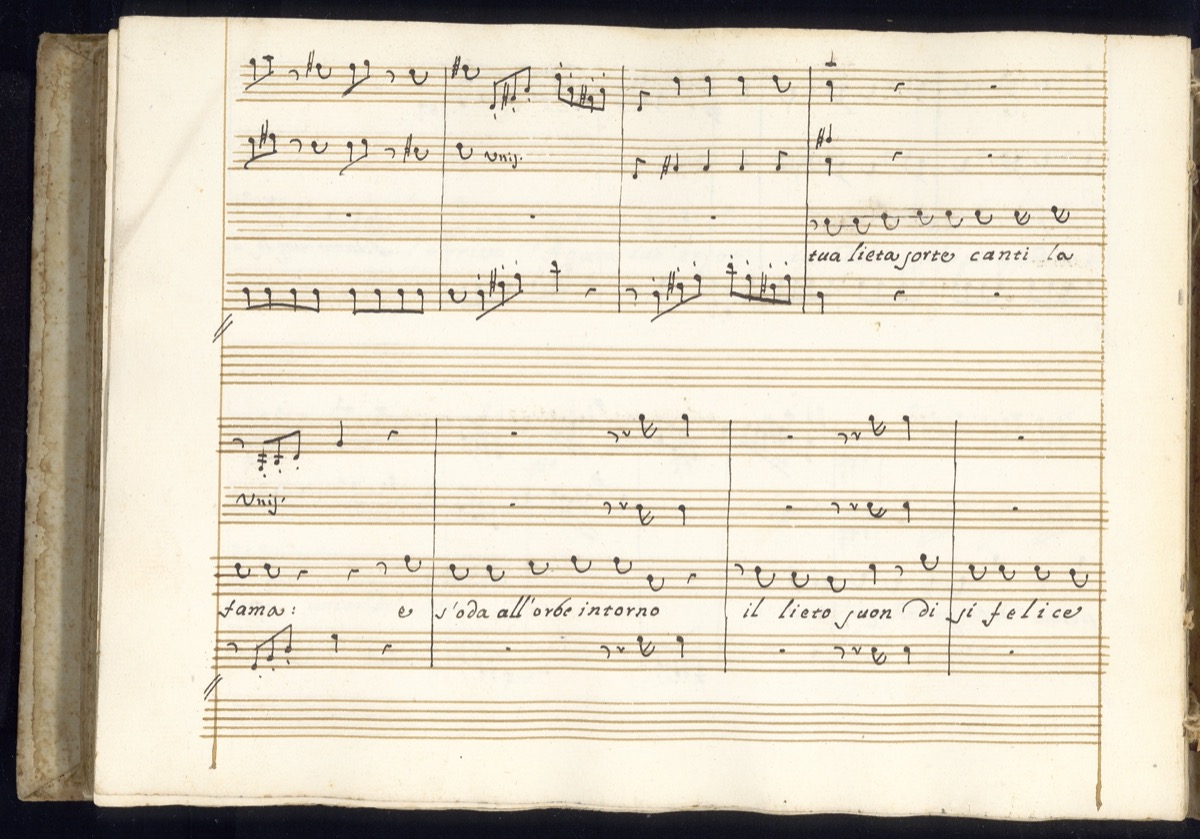 Unis.
tua lieta sorte canti la
Unis.
fama: e s'oda all'orbe intorno il lieto suon di sì felice